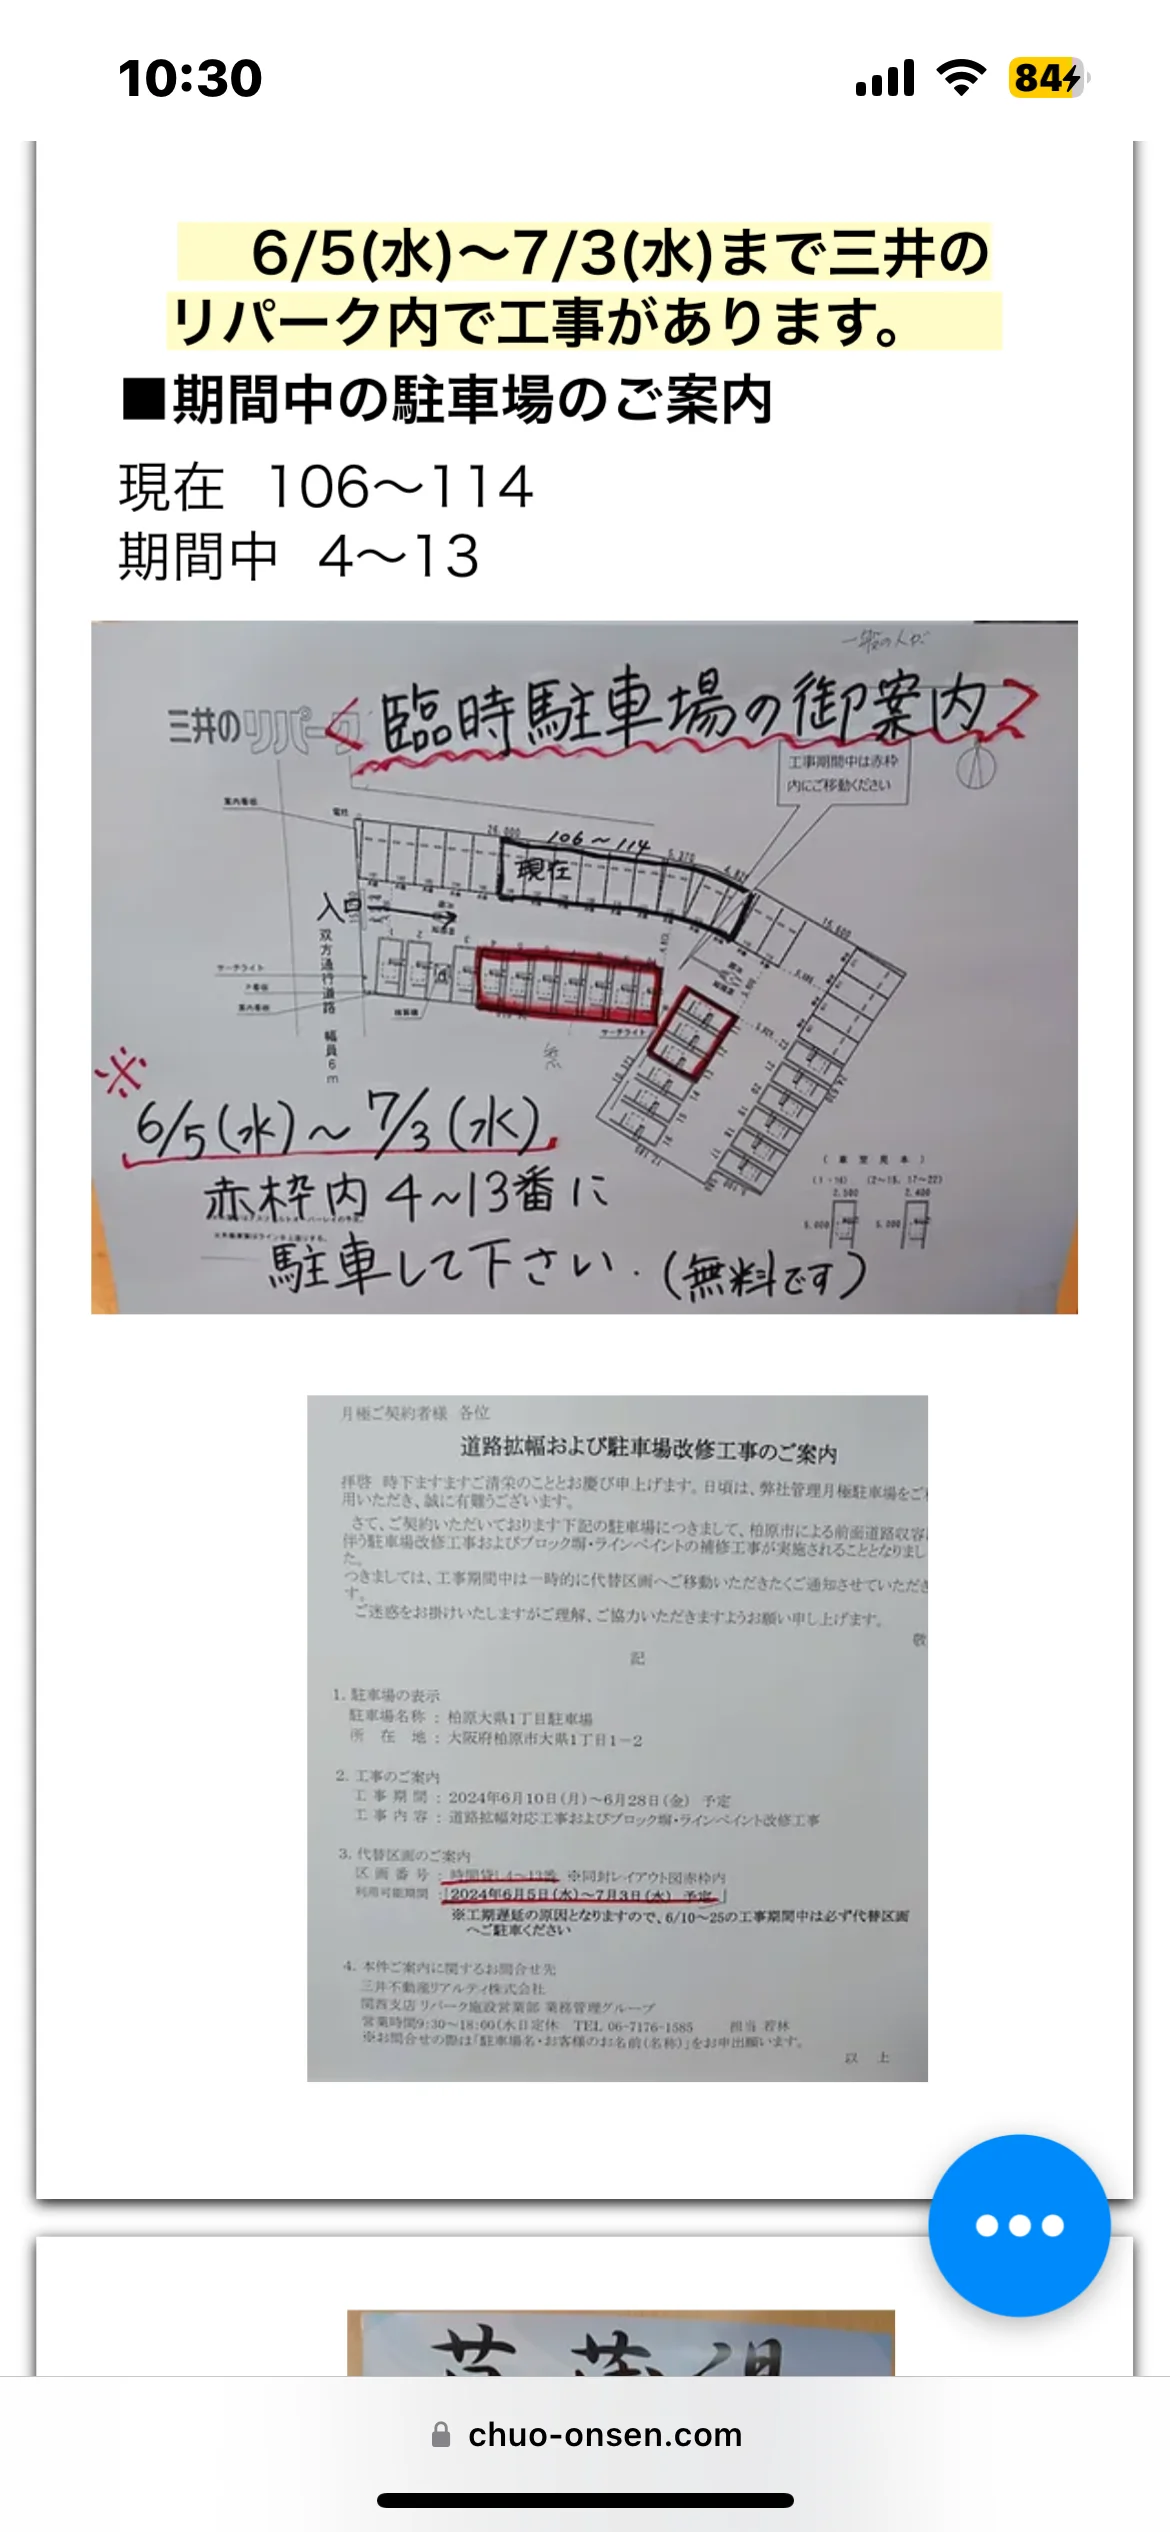 10:30
84
6/5(水)～7/3(水)まで三井の
リパーク内で工事があります。
■期間中の駐車場のご案内
現在 106～114
期間中 4～13
三井のリパーク
<臨時駐車場の御案内>
工事期間中は赤枠
内にご移動ください
案内看板
電柱
26,000
106～114
現在
入口
双方通行道路 幅員6m
サーチライト
案内看板
精算機
サーチライト
※
6/5(水)～7/3(水)
赤枠内4～13番に
駐車して下さい.(無料です)
(車室見本)
(2～15, 17～22)
2,500 2,400
5,000 5,000
月極ご契約者様 各位
道路拡幅および駐車場改修工事のご案内
拝啓 時下ますますご清栄のこととお慶び申上げます。日頃は、弊社管理月極駐車場をご
用いただき、誠に有難うございます。
さて、ご契約いただいております下記の駐車場につきまして、柏原市による前面道路収容
伴う駐車場改修工事およびブロック塀・ラインペイントの補修工事が実施されることとなりまし
た。
つきましては、工事期間中は一時的に代替区画へご移動いただきたくご通知させていただき
す。
ご迷惑をお掛けいたしますがご理解、ご協力いただきますようお願い申し上げます。
敬
記
1. 駐車場の表示
駐車場名称 : 柏原大県1丁目駐車場
所在地 : 大阪府柏原市大県1丁目1-2
2. 工事のご案内
工事期間 : 2024年6月10日(月)～6月28日(金) 予定
工事内容 : 道路拡幅対応工事およびブロック塀・ラインペイント改修工事
3. 代替区画のご案内
区画番号 : 時間貸し4～13番 ※同封レイアウト図赤枠内
利用可能期間 : 「2024年6月5日(水)～7月3日(水) 予定」
※工期遅延の原因となりますので、6/10～25の工事期間中は必ず代替区画
へご駐車ください
4. 本件ご案内に関するお問合せ先
三井不動産リアルティ株式会社
関西支店 リパーク施設営業部 業務管理グループ
営業時間9:30～18:00(水日定休 TEL 06-7176-1585 担当 若林
※お問合せの際は「駐車場名・お客様のお名前(名称)」をお申出願います。
以上
chuo-onsen.com